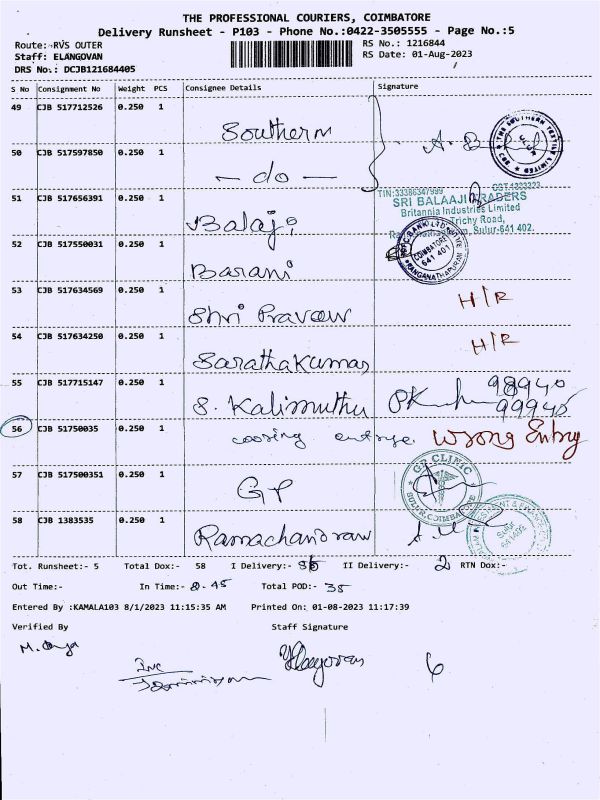 THE PROFESSIONAL COURIERS, COIMBATORE
Delivery Runsheet - P103 - Phone No.:0422-3505555 - Page No.:5
Route:-RVS OUTER
RS No.: 1216844
Staff: ELANGOVAN
RS Date: 01-Aug-2023
DRS No.: DCJB121684405
S No Consignment No Weight PCS Consignee Details Signature
49 CJB 517712526 0.250 1 Southern
50 CJB 517597850 0.250 1 - do -
51 CJB 517656391 0.250 1 Balaji
TIN:33386347999
SRI BALAAJI TRADERS
Britannia Industries Limited
Trichy Road,
Sulur-641 402.
52 CJB 517550031 0.250 1 Barani
COIMBATORE
641 401
53 CJB 517634569 0.250 1 Shri Praveen H/R
54 CJB 517634250 0.250 1 Sarathakumar H/R
55 CJB 517715147 0.250 1 S. Kalimuthu
98940
99940
56 CJB 51750035 0.250 1 Wrong Entry
57 CJB 517500351 0.250 1 GP
G.P. CLINIC
SULUR, COIMBATORE
58 CJB 1383535 0.250 1 Ramachandran
Tot. Runsheet:- 5 Total Dox:- 58 I Delivery:- II Delivery:- 2 RTN Dox:-
Out Time:- In Time:- 8-45 Total POD:- 35
Entered By :KAMALA103 8/1/2023 11:15:35 AM Printed On: 01-08-2023 11:17:39
Verified By Staff Signature
6